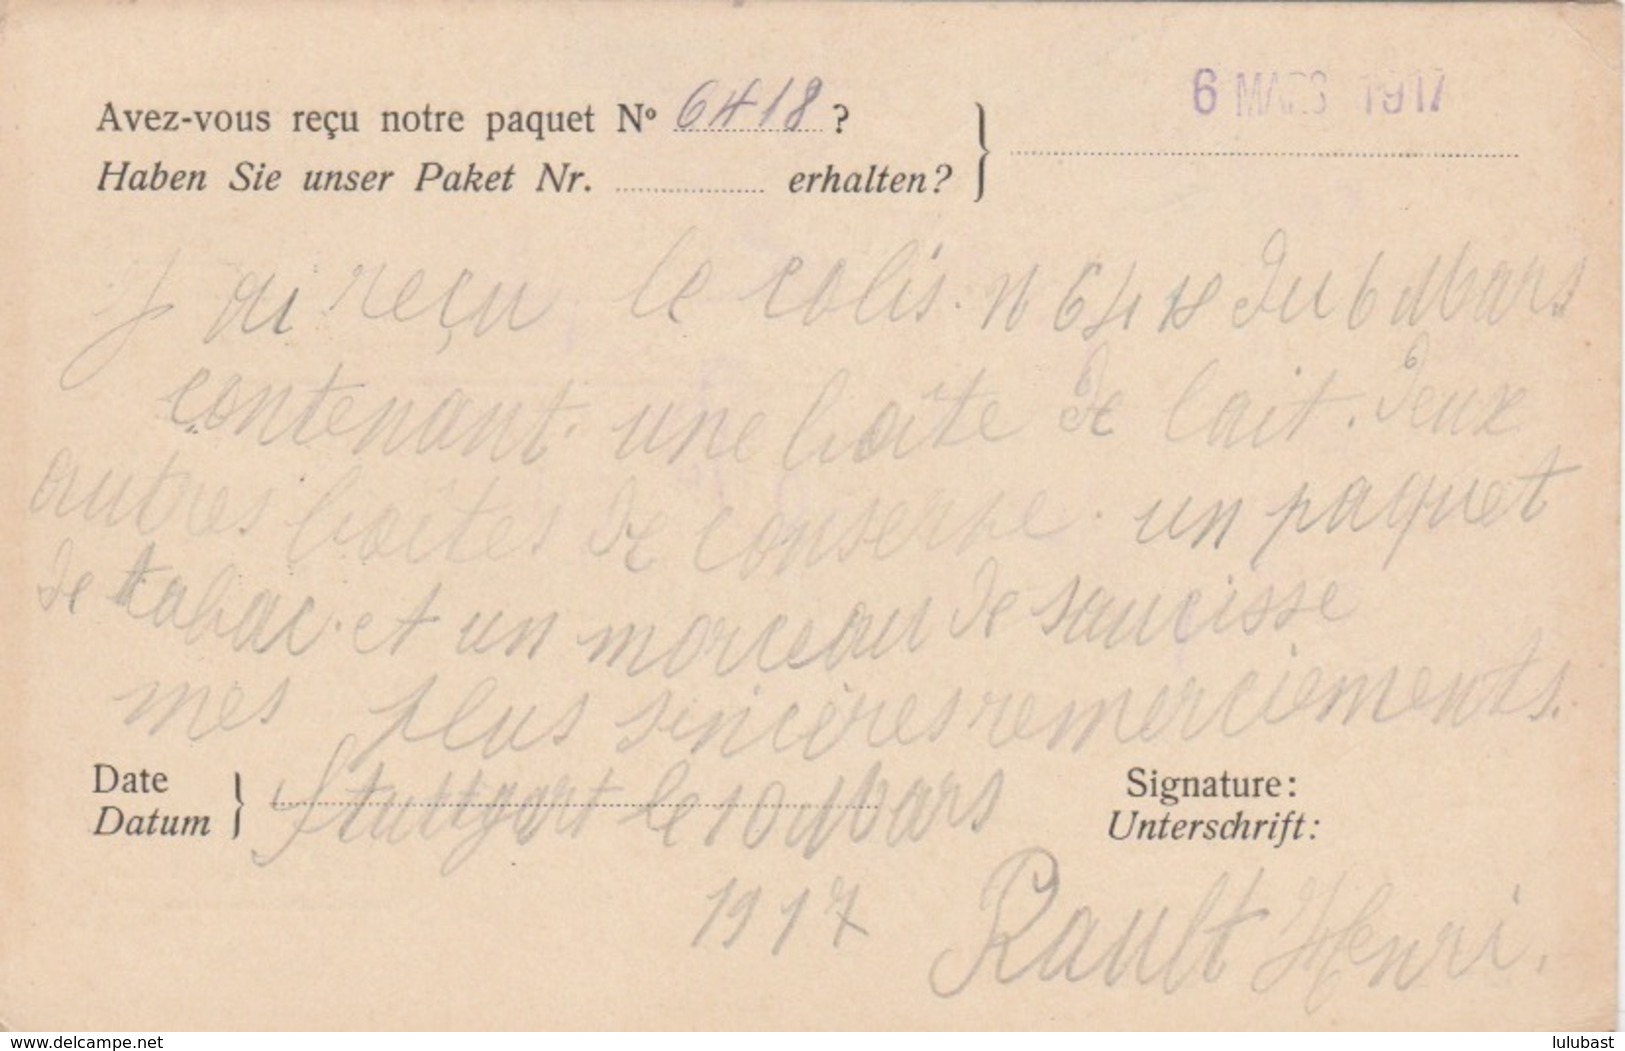 Avez-vous reçu notre paquet Nº 6418 ?
6 MARS 1917
Haben Sie unser Paket Nr. erhalten?
J ai reçu le colis. n 6418 du 6 Mars
contenant. une boîte de lait. deux
autres boîtes de conserve. un paquet
de tabac. et un morceau de saucisse
mes plus sincères remerciements.
Date
Datum
Stuttgart le 10 Mars
1917
Signature:
Unterschrift:
Rault Henri.
www.delcampe.net
lulubast